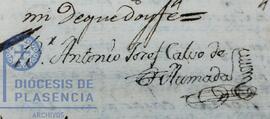 mi De que doy fe =
Antonio Josef Calvo de
Ahumada
DIOCESIS DE
PLASENCIA
ARCHIVOS